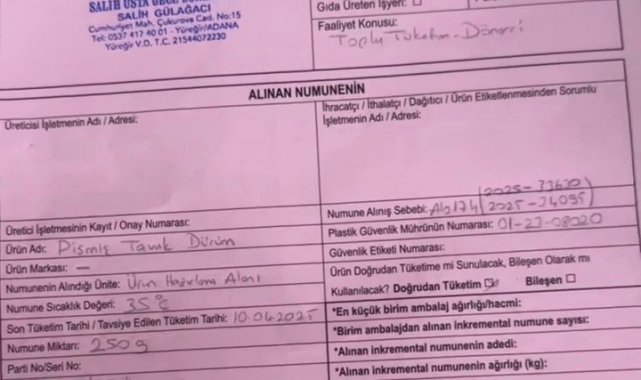 SALİH USTA
SALİH GÜLAĞACI
Cumhuriyet Mah. Çukurova Cad. No:15
Tel: 0537 417 40 01 - Yüreğir/ADANA
Yüreğir V.D. T.C. 21544072230
Gıda Üreten İşyeri: ☐
Faaliyet Konusu:
Toplu Tüketim - Dönerci
ALINAN NUMUNENİN
Üreticisi İşletmenin Adı / Adresi:
İhracatçı / İthalatçı / Dağıtıcı / Ürün Etiketlenmesinden Sorumlu
İşletmenin Adı / Adresi:
Üretici İşletmesinin Kayıt / Onay Numarası:
Ürün Adı: Pişmiş Tavuk Dürüm
Ürün Markası: —
Numunenin Alındığı Ünite: Ürün Hazırlama Alanı
Numune Sıcaklık Değeri: 35°C
Son Tüketim Tarihi / Tavsiye Edilen Tüketim Tarihi: 10.04.2025
Numune Miktarı: 250g
Parti No/Seri No:
Numune Alınış Sebebi: Alo174 (2025-
2025-34095)
Plastik Güvenlik Mührünün Numarası: 01-27-08020
Güvenlik Etiketi Numarası:
Ürün Doğrudan Tüketime mi Sunulacak, Bileşen Olarak mı
Kullanılacak? Doğrudan Tüketim ☑ Bileşen ☐
*En küçük birim ambalaj ağırlığı/hacmi:
*Birim ambalajdan alınan inkremental numune sayısı:
*Alınan inkremental numunenin adedi:
*Alınan inkremental numunenin ağırlığı (kg):